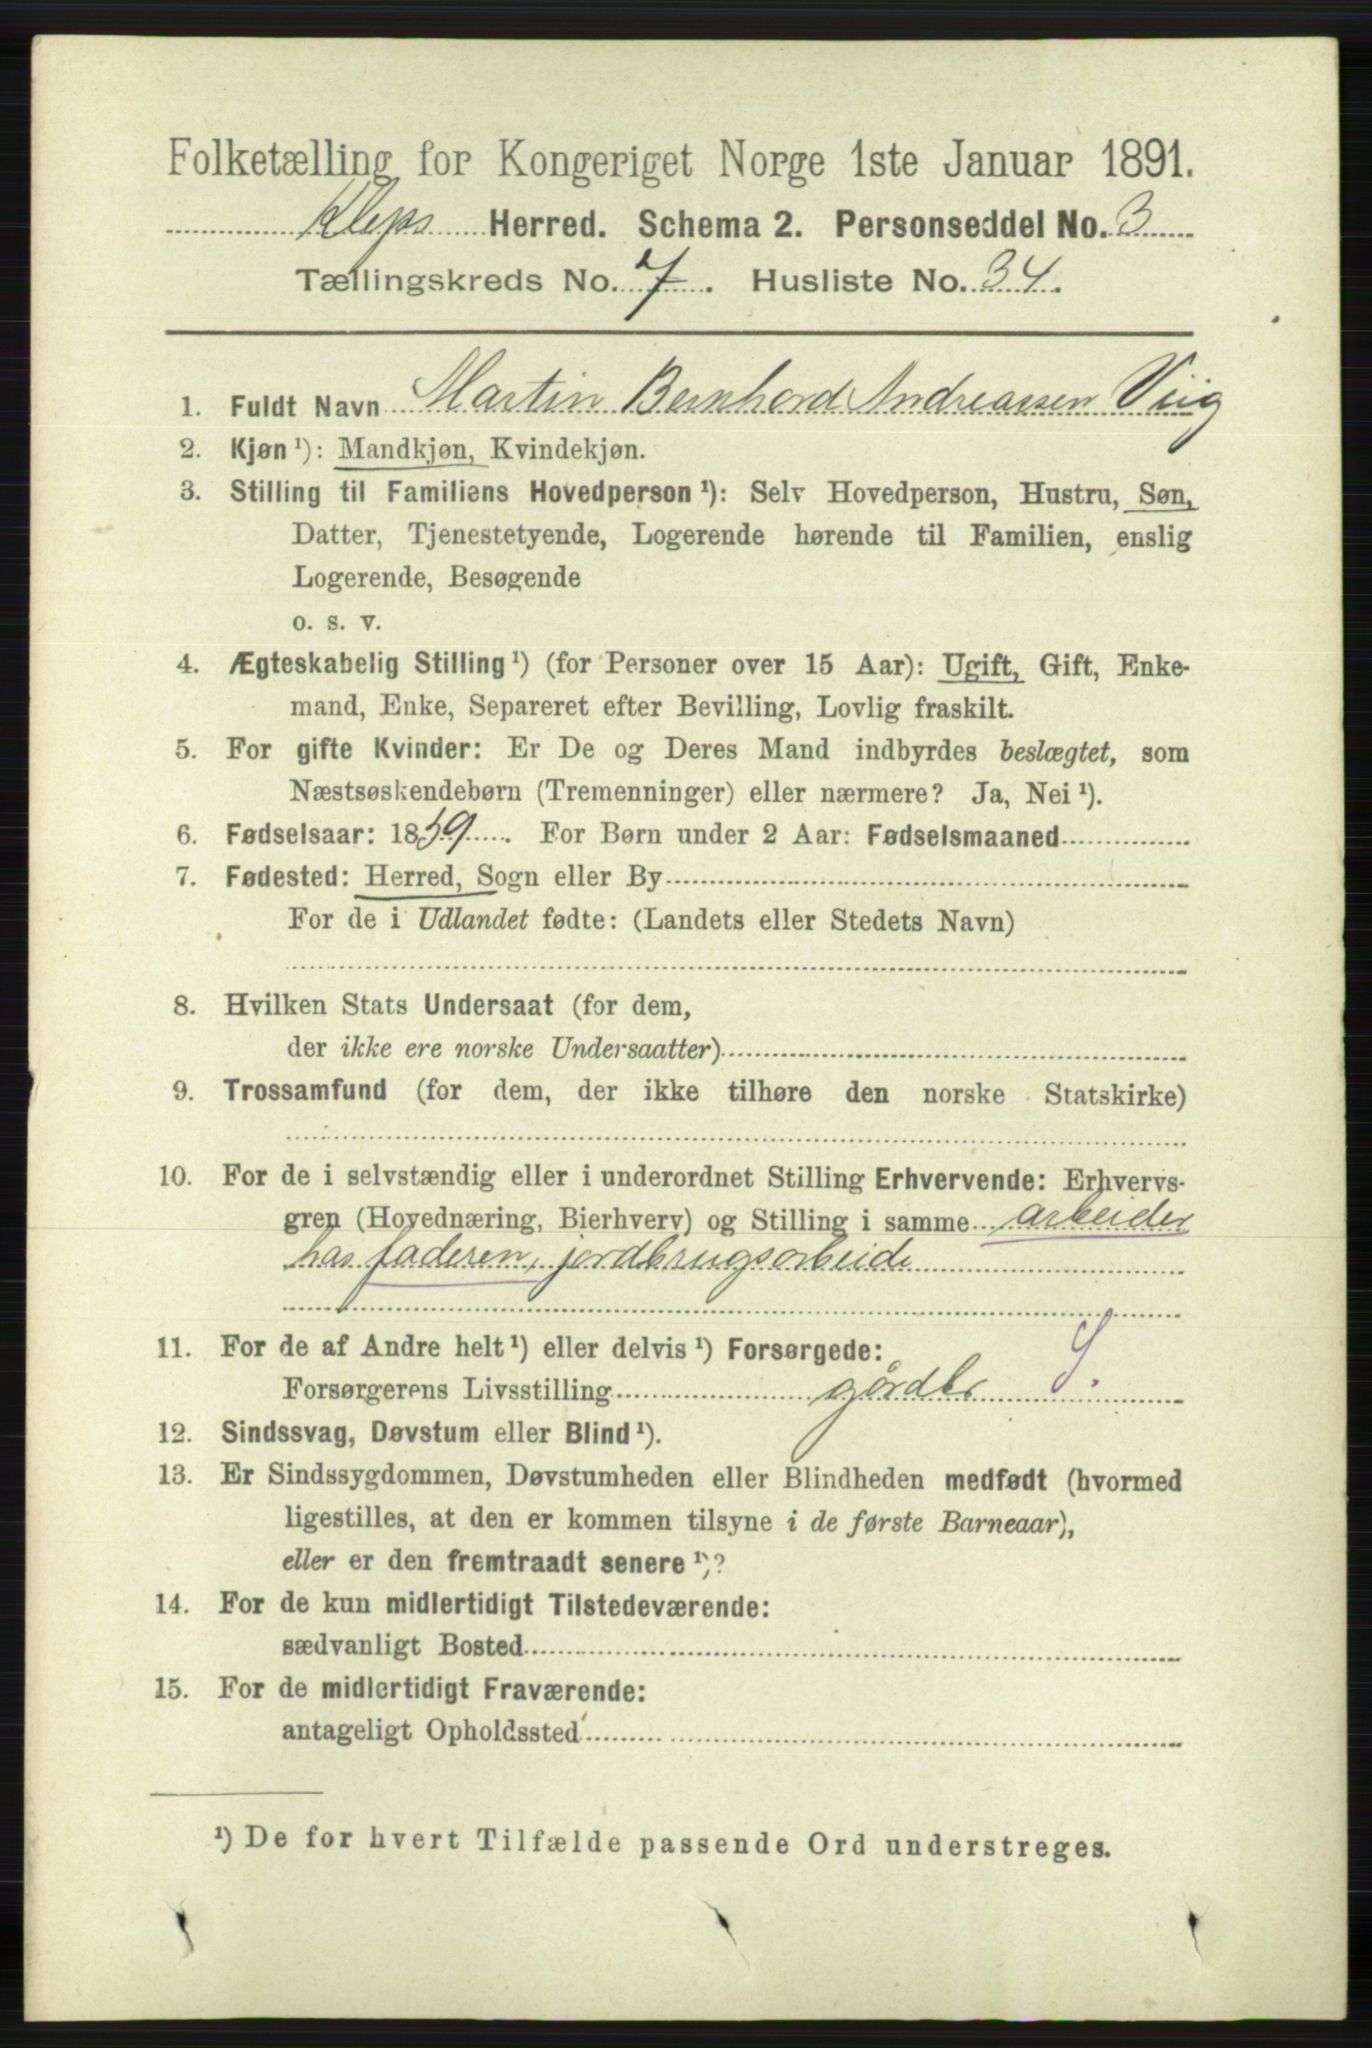 Folketælling for Kongeriget Norge 1ste Januar 1891.
Kleps Herred. Schema 2. Personseddel No. 3
Tællingskreds No. 7. Husliste No. 34.
1. Fuldt Navn Martin Bernhard Andreassen Viig
2. Kjøn ¹): Mandkjøn, Kvindekjøn.
3. Stilling til Familiens Hovedperson ¹): Selv Hovedperson, Hustru, Søn,
Datter, Tjenestetyende, Logerende hørende til Familien, enslig
Logerende, Besøgende
o. s. v.
4. Ægteskabelig Stilling ¹) (for Personer over 15 Aar): Ugift, Gift, Enke-
mand, Enke, Separeret efter Bevilling, Lovlig fraskilt.
5. For gifte Kvinder: Er De og Deres Mand indbyrdes beslægtet, som
Næstsøskendebørn (Tremenninger) eller nærmere? Ja, Nei ¹).
6. Fødselsaar: 1859. For Børn under 2 Aar: Fødselsmaaned
7. Fødested: Herred, Sogn eller By
For de i Udlandet fødte: (Landets eller Stedets Navn)
8. Hvilken Stats Undersaat (for dem,
der ikke ere norske Undersaatter)
9. Trossamfund (for dem, der ikke tilhøre den norske Statskirke)
10. For de i selvstændig eller i underordnet Stilling Erhvervende: Erhvervs-
gren (Hovednæring, Bierhverv) og Stilling i samme arbeider
has faderen, jordbrugsarbeide
11. For de af Andre helt ¹) eller delvis ¹) Forsørgede:
Forsørgerens Livsstilling gårdbr S.
12. Sindssvag, Døvstum eller Blind ¹).
13. Er Sindssygdommen, Døvstumheden eller Blindheden medfødt (hvormed
ligestilles, at den er kommen tilsyne i de første Barneaar),
eller er den fremtraadt senere ¹)?
14. For de kun midlertidigt Tilstedeværende:
sædvanligt Bosted
15. For de midlertidigt Fraværende:
antageligt Opholdssted
¹) De for hvert Tilfælde passende Ord understreges.